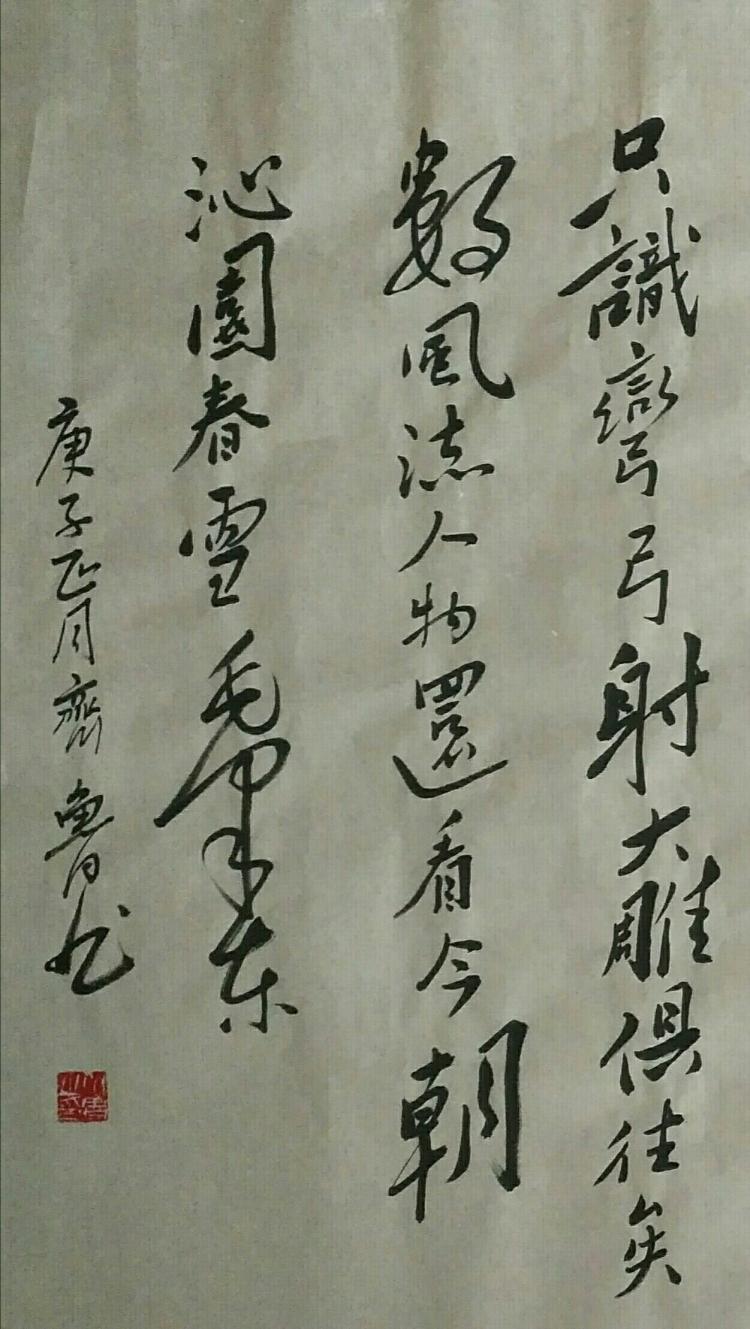 只識彎弓射大雕俱往矣
數風流人物還看今朝
沁園春雪毛澤东
庚子正月齊魯書